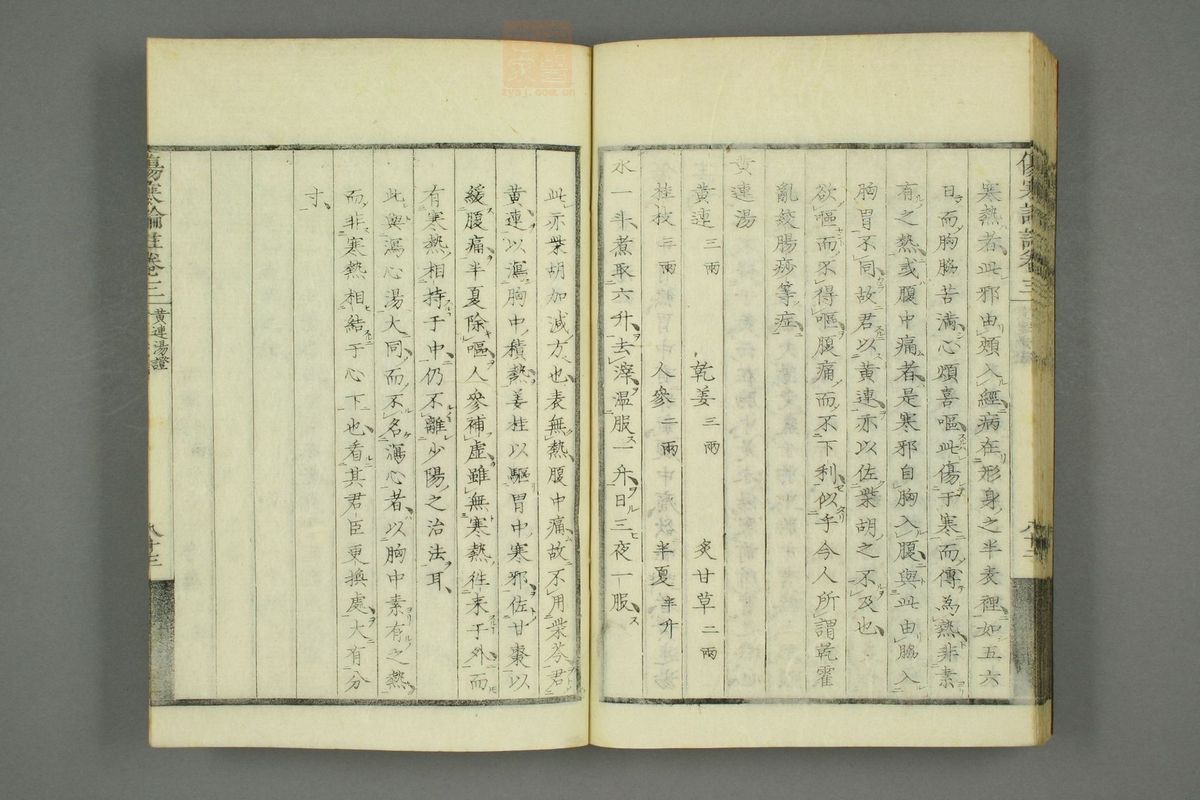 寒熱者此邪由頰入經病在形身之半表裡如五六
日而胸脇苦滿心煩喜嘔此傷于寒而傳為熱非素
有之熱或腹中痛者是寒邪自胸入腹與此由脇入
胸胃不同故君以黃連亦以佐柴胡之不及也
欲嘔而不得嘔腹痛而不下利似乎今人所謂乾霍
亂絞腸痧等症
黃連湯
黃連三兩 乾姜三兩 炙甘草二兩
桂枝三兩 人參二兩 半夏半升
水一斗煮取六升去滓溫服一升日三夜一服
此亦柴胡加減方也表無熱腹中痛故不用柴芩君
黃連以瀉胸中積熱姜桂以驅胃中寒邪佐甘棗以
緩腹痛半夏除嘔人參補虛雖無寒熱徃来于外而
有寒熱相持于中仍不離少陽之治法耳
此與瀉心湯大同而不名瀉心者以胸中素有之熱
而非寒熱相結于心下也看其君臣更換處大有分
寸
傷寒論註卷三
黃連湯證
八十三
zysj.com.cn